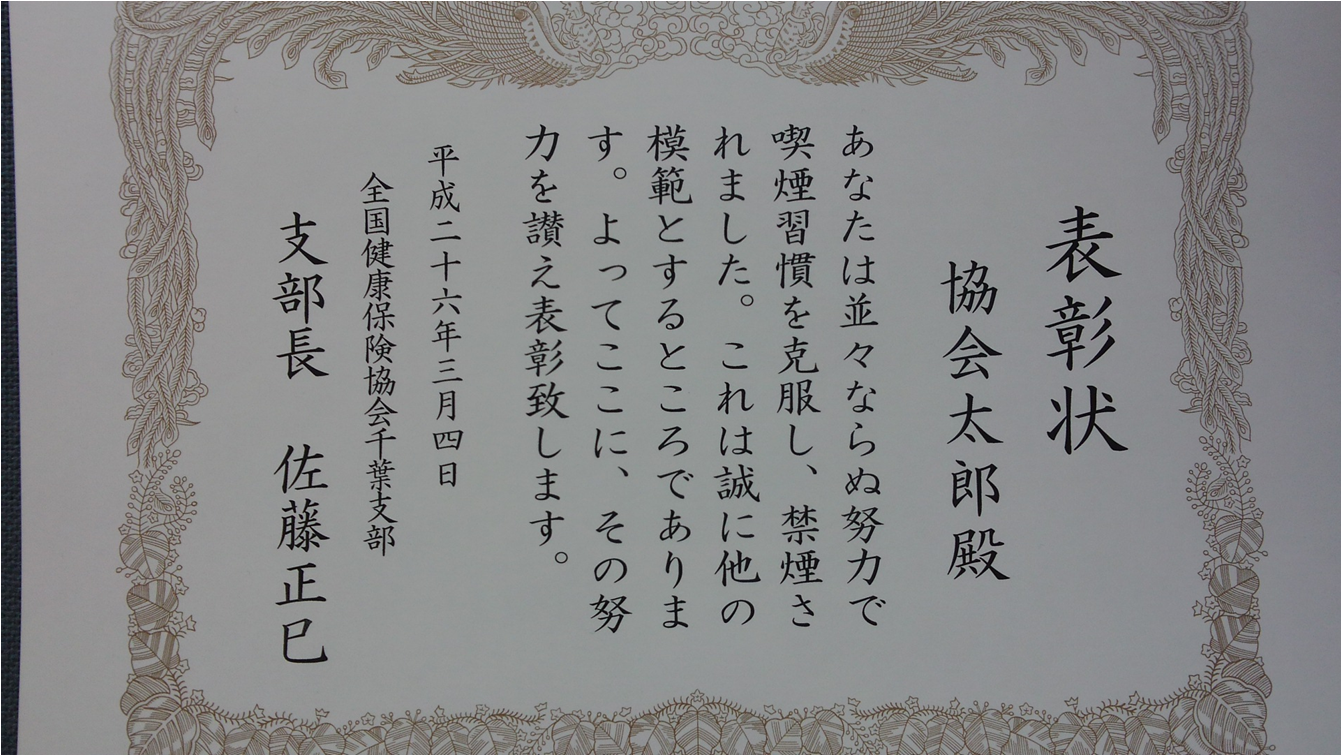 表彰状
協会太郎殿
あなたは並々ならぬ努力で
喫煙習慣を克服し、禁煙さ
れました。これは誠に他の
模範とするところでありま
す。よってここに、その努
力を讃え表彰致します。
平成二十六年三月四日
全国健康保険協会千葉支部
支部長 佐藤正巳